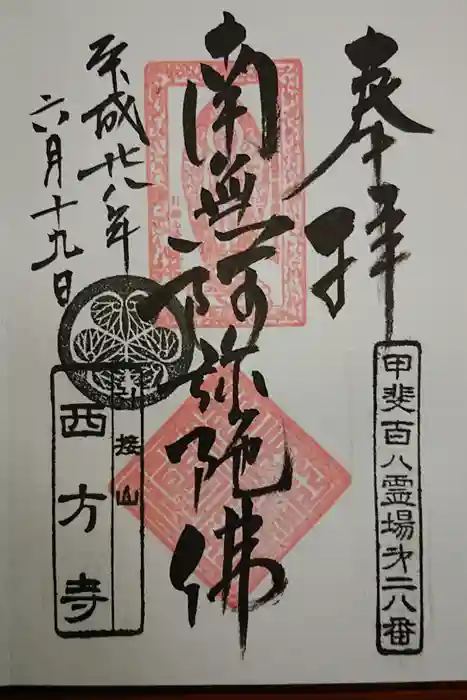 奉拝
甲斐百八霊場第二八番
南無阿弥陀佛
平成廿八年
六月十九日
引接山
西方寺